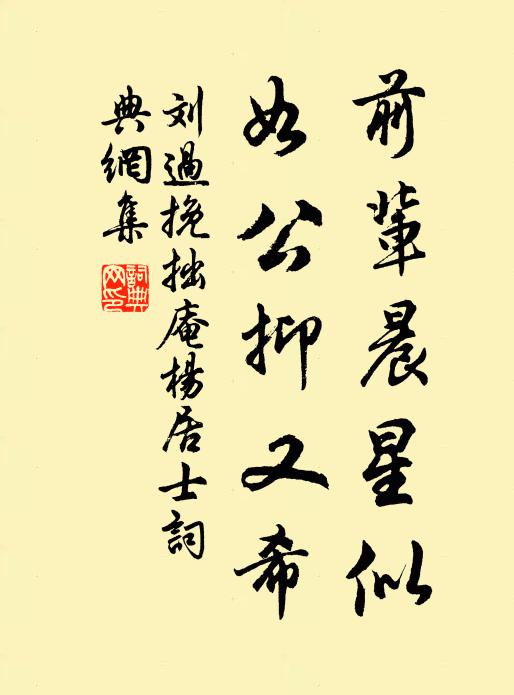 前輩晨星似
如公抑又希
刘過挽拙庵楊居士詞
典網集
詞典网印